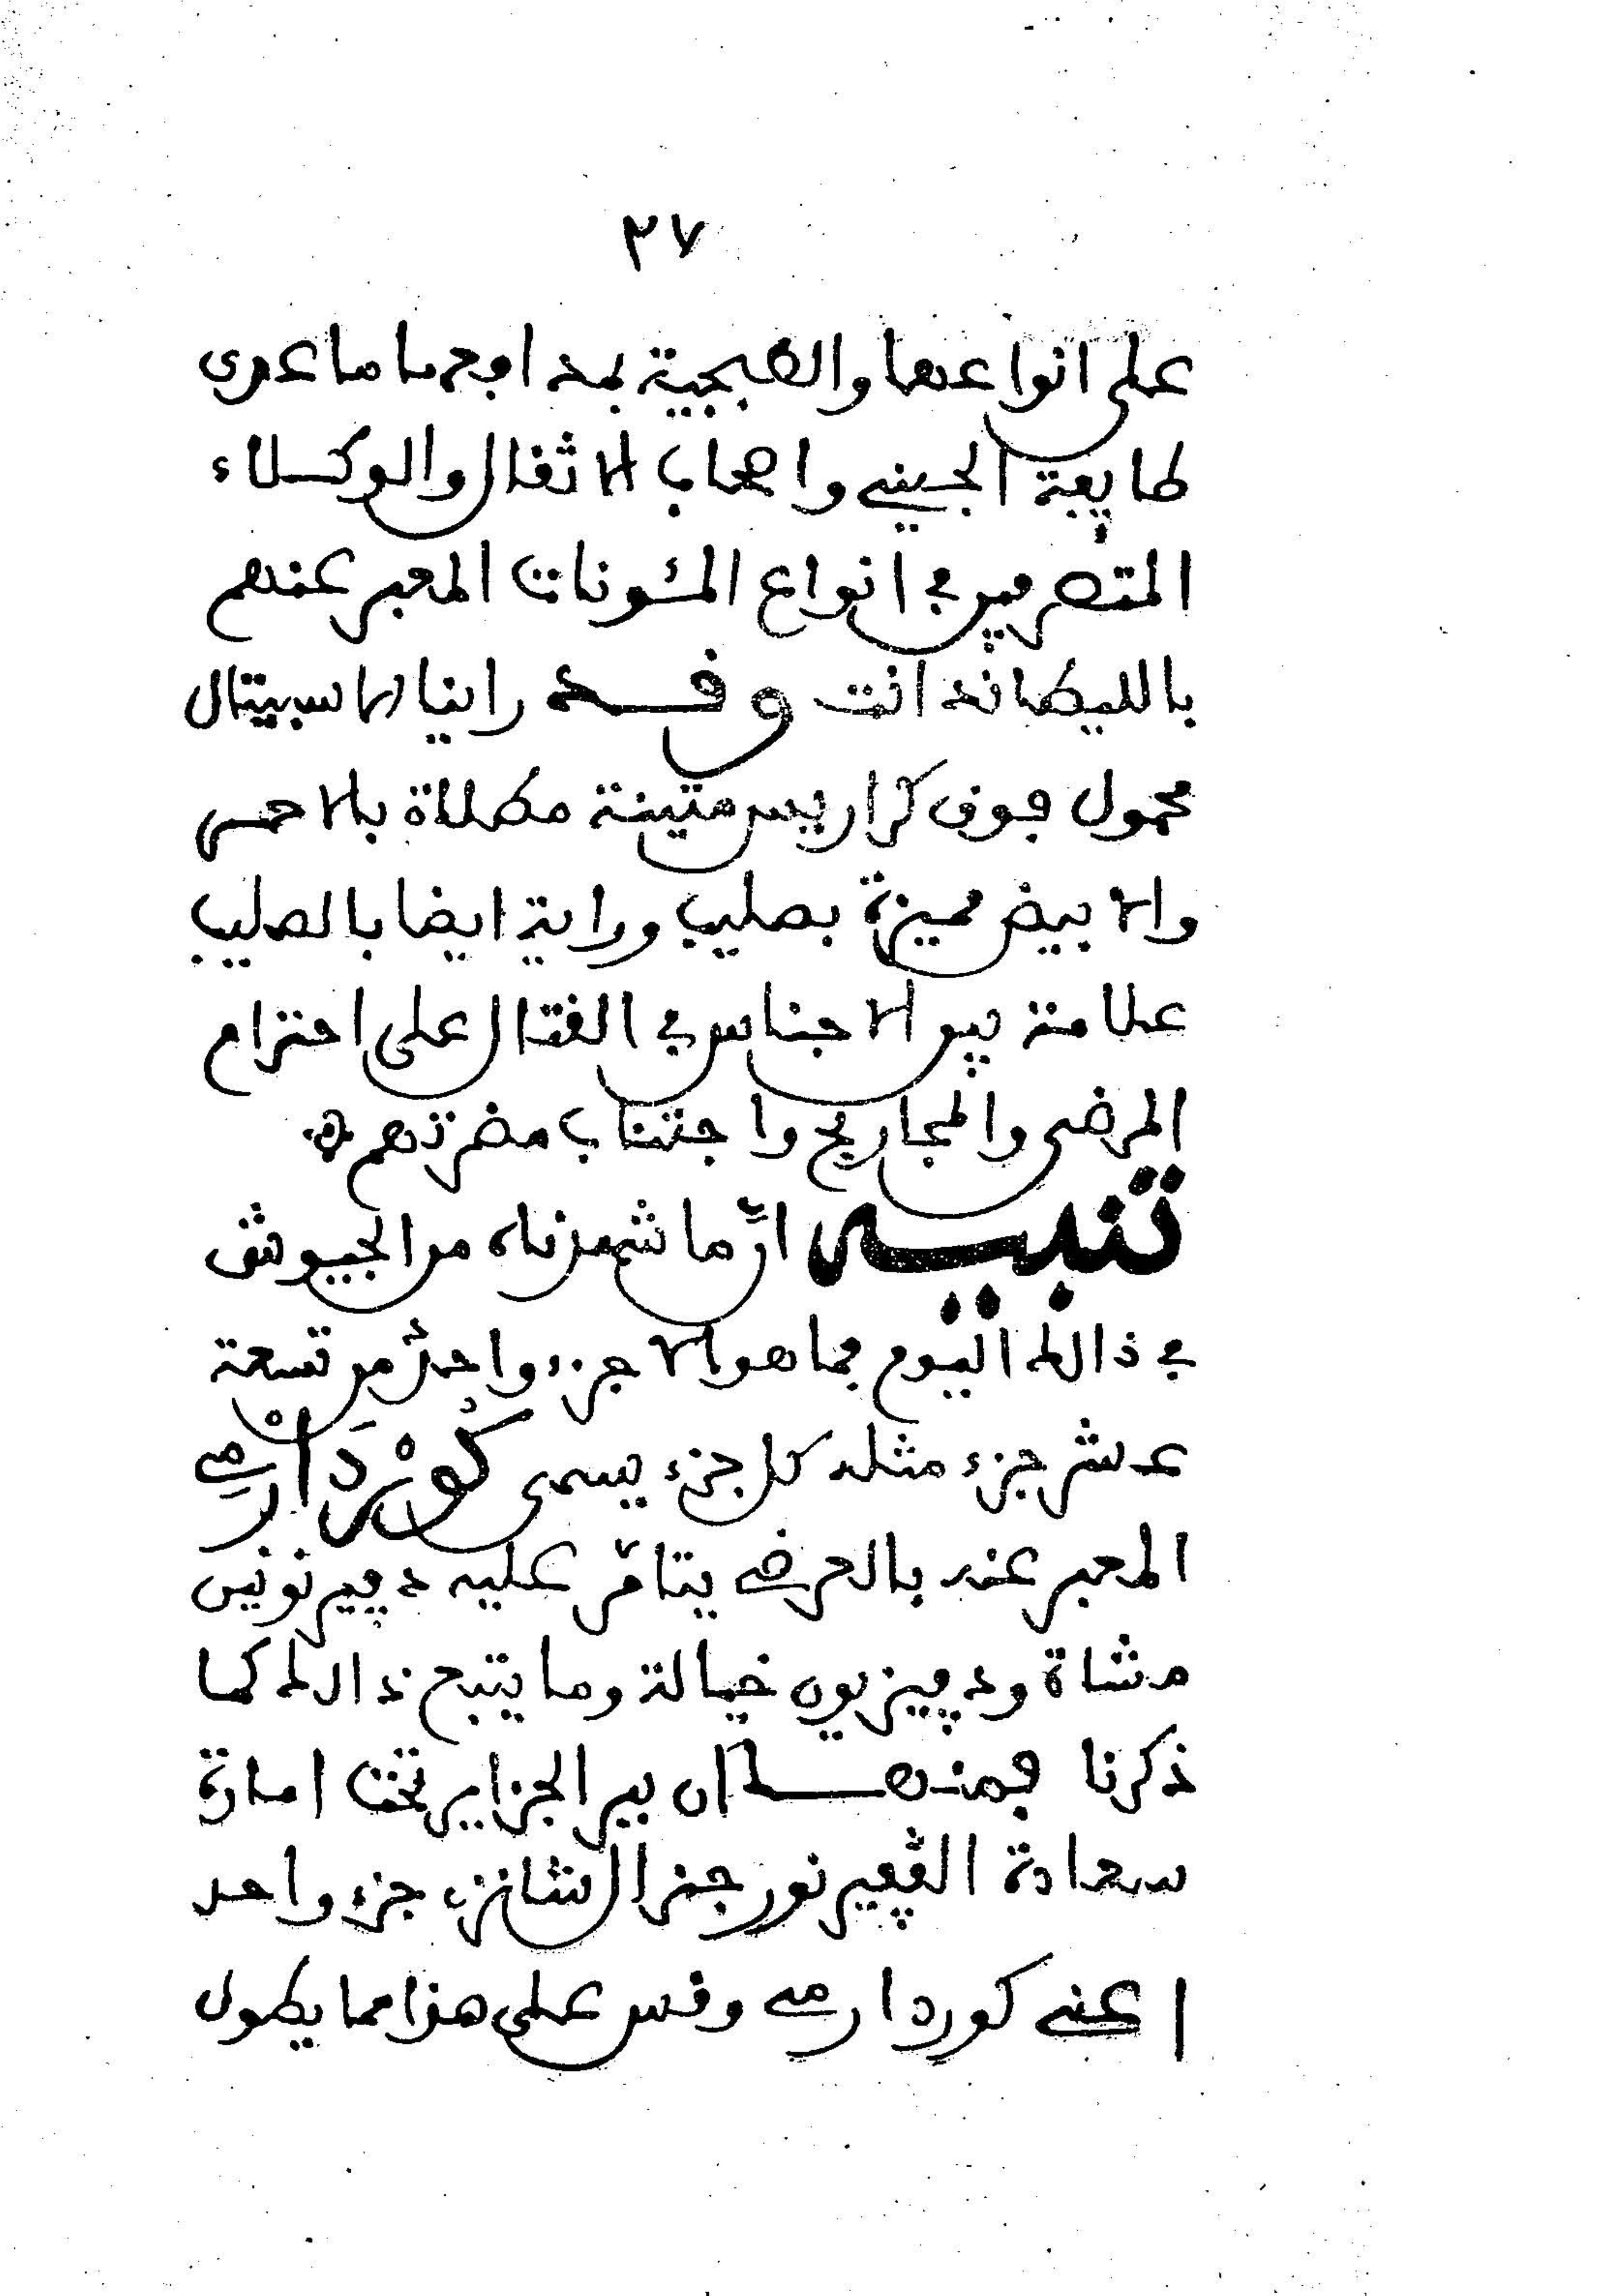 ٢٧
على انواعها والطبجية بمدافعها ما عدى
طايفة الجيني واصحاب الاثقال والوكلاء
المتصرفين في انواع المئونات المعبر عنهم
بالليطاندانت وقد راينا الاسبيتال
محمول فوق كراريس متينة مظللاة بالاحمر
والابيض مميزة بصليب وراية ايضا بالصليب
علامة بين الاجناس في القتال على احترام
المرضى والمجاريح واجتناب مضرتهم
تنبيه انّ ما شهدناه من الجيوش
في ذالك اليوم فما هو الا جزء واحد من تسعة
عشر جزء مثله كل جزء يسمى كُورْدَارْمِي
المعبر عنه بالعرضي يتامّر عليه دڢيزنونين
مشاة ودڢيزيون خيالة وما يتبع ذالك كما
ذكرنا فمنها ان بير الجزاير تحت امارة
سعادة الڨڢيرنور جنرال شانزي جزء واحد
اعني كوردارمي وقس على هذا مما يطول